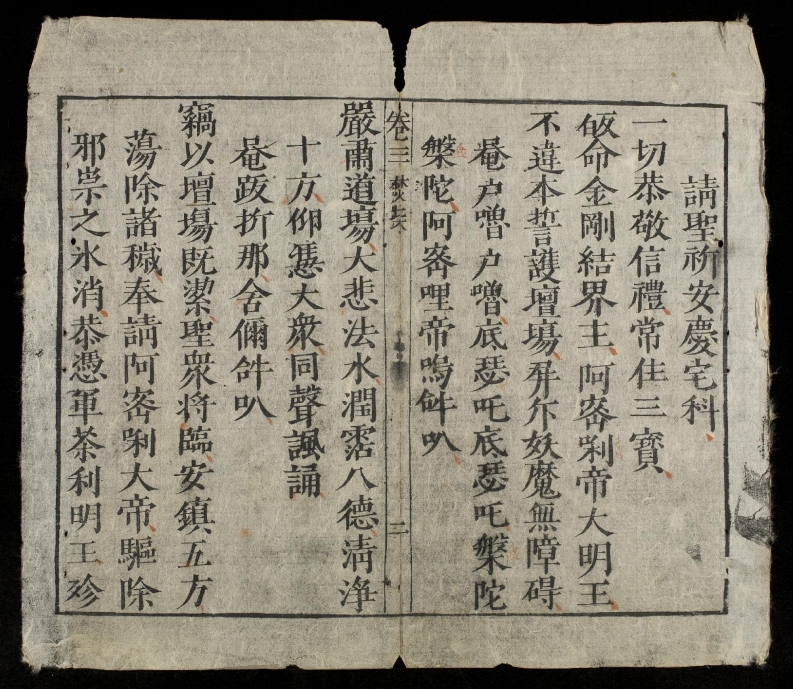 請聖祈安慶宅科
一切恭敬信禮常住三寶
皈命金剛結界主阿宻唎帝大明王
不違本誓護壇場屏尒妖魔無障碍
唵户嚕户嚕底瑟吒底瑟吒槃陀
槃陀阿宻哩帝嗚𤙖叭
卷三
三
嚴肅道場大悲法水潤霑八德清淨
十方仰慿大衆同聲諷誦
唵跋折那舍儞𤙖叭
竊以壇場既潔聖衆将臨安鎮五方
蕩除諸穢奉請阿宻唎大帝驅除
邪祟之氷消恭憑軍荼利明王殄